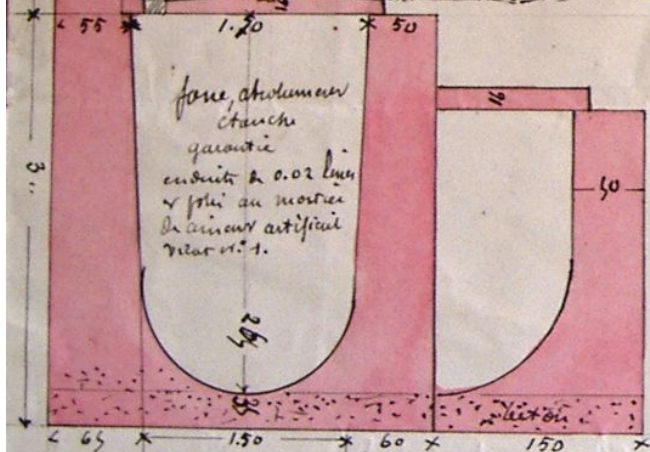 55 1.20 50
fosse, absolument
étanche
garantie
enduite de 0.02 lissé
et poli au mortier
de ciment artificiel
Vicat n.° 1.
3
16
50
265
35
béton
65 1.50 60 150